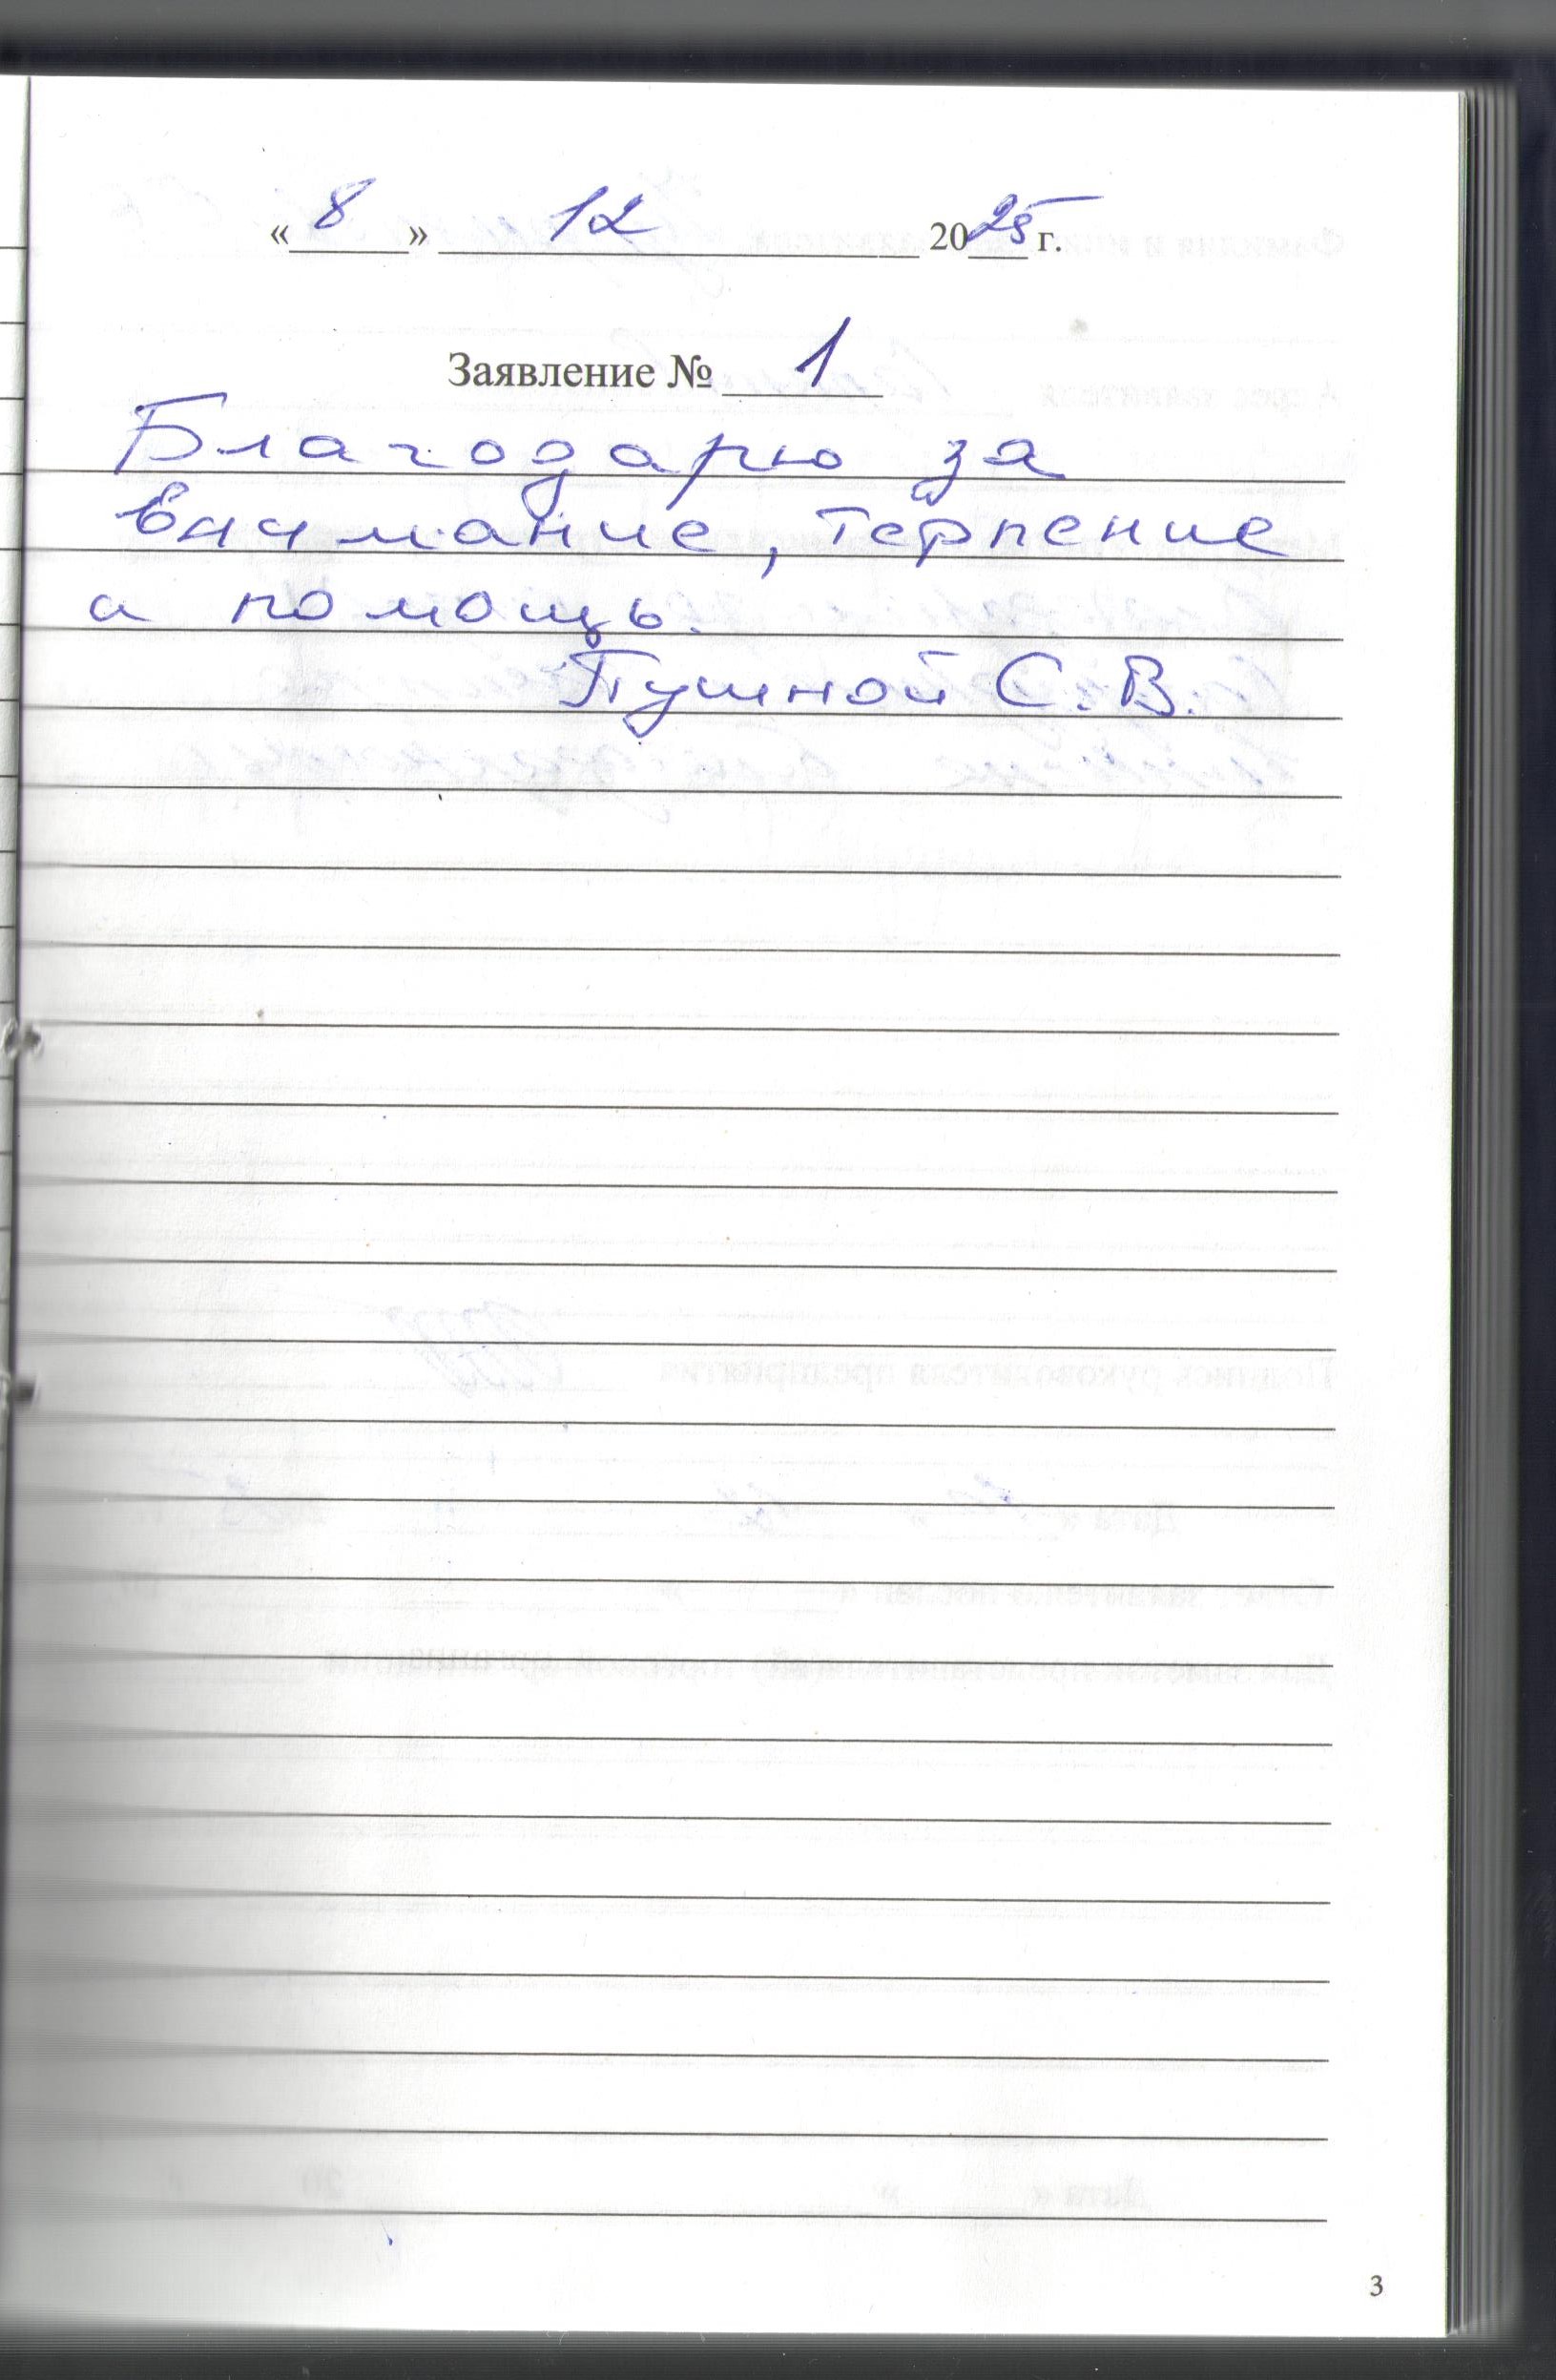 « 8 » 12 2025 г.
Заявление № 1
Благодарю за
внимание, терпение
и помощь.
Пушной С. В.
3